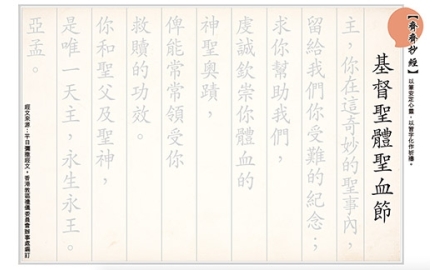 【齊齊抄經】
以筆安定心靈，以書字化作祈禱。
基督聖體聖血節
主，你在這奇妙的聖事內，
留給我們你受難的紀念；
求你幫助我們，
虔誠欽崇你體血的
神聖奧蹟，
俾能常常領受你
救贖的功效。
你和聖父及聖神，
是唯一天主，永生永王。
亞孟。
經文來源：平日彌撒經文。香港教區禮儀委員會辦事處編訂